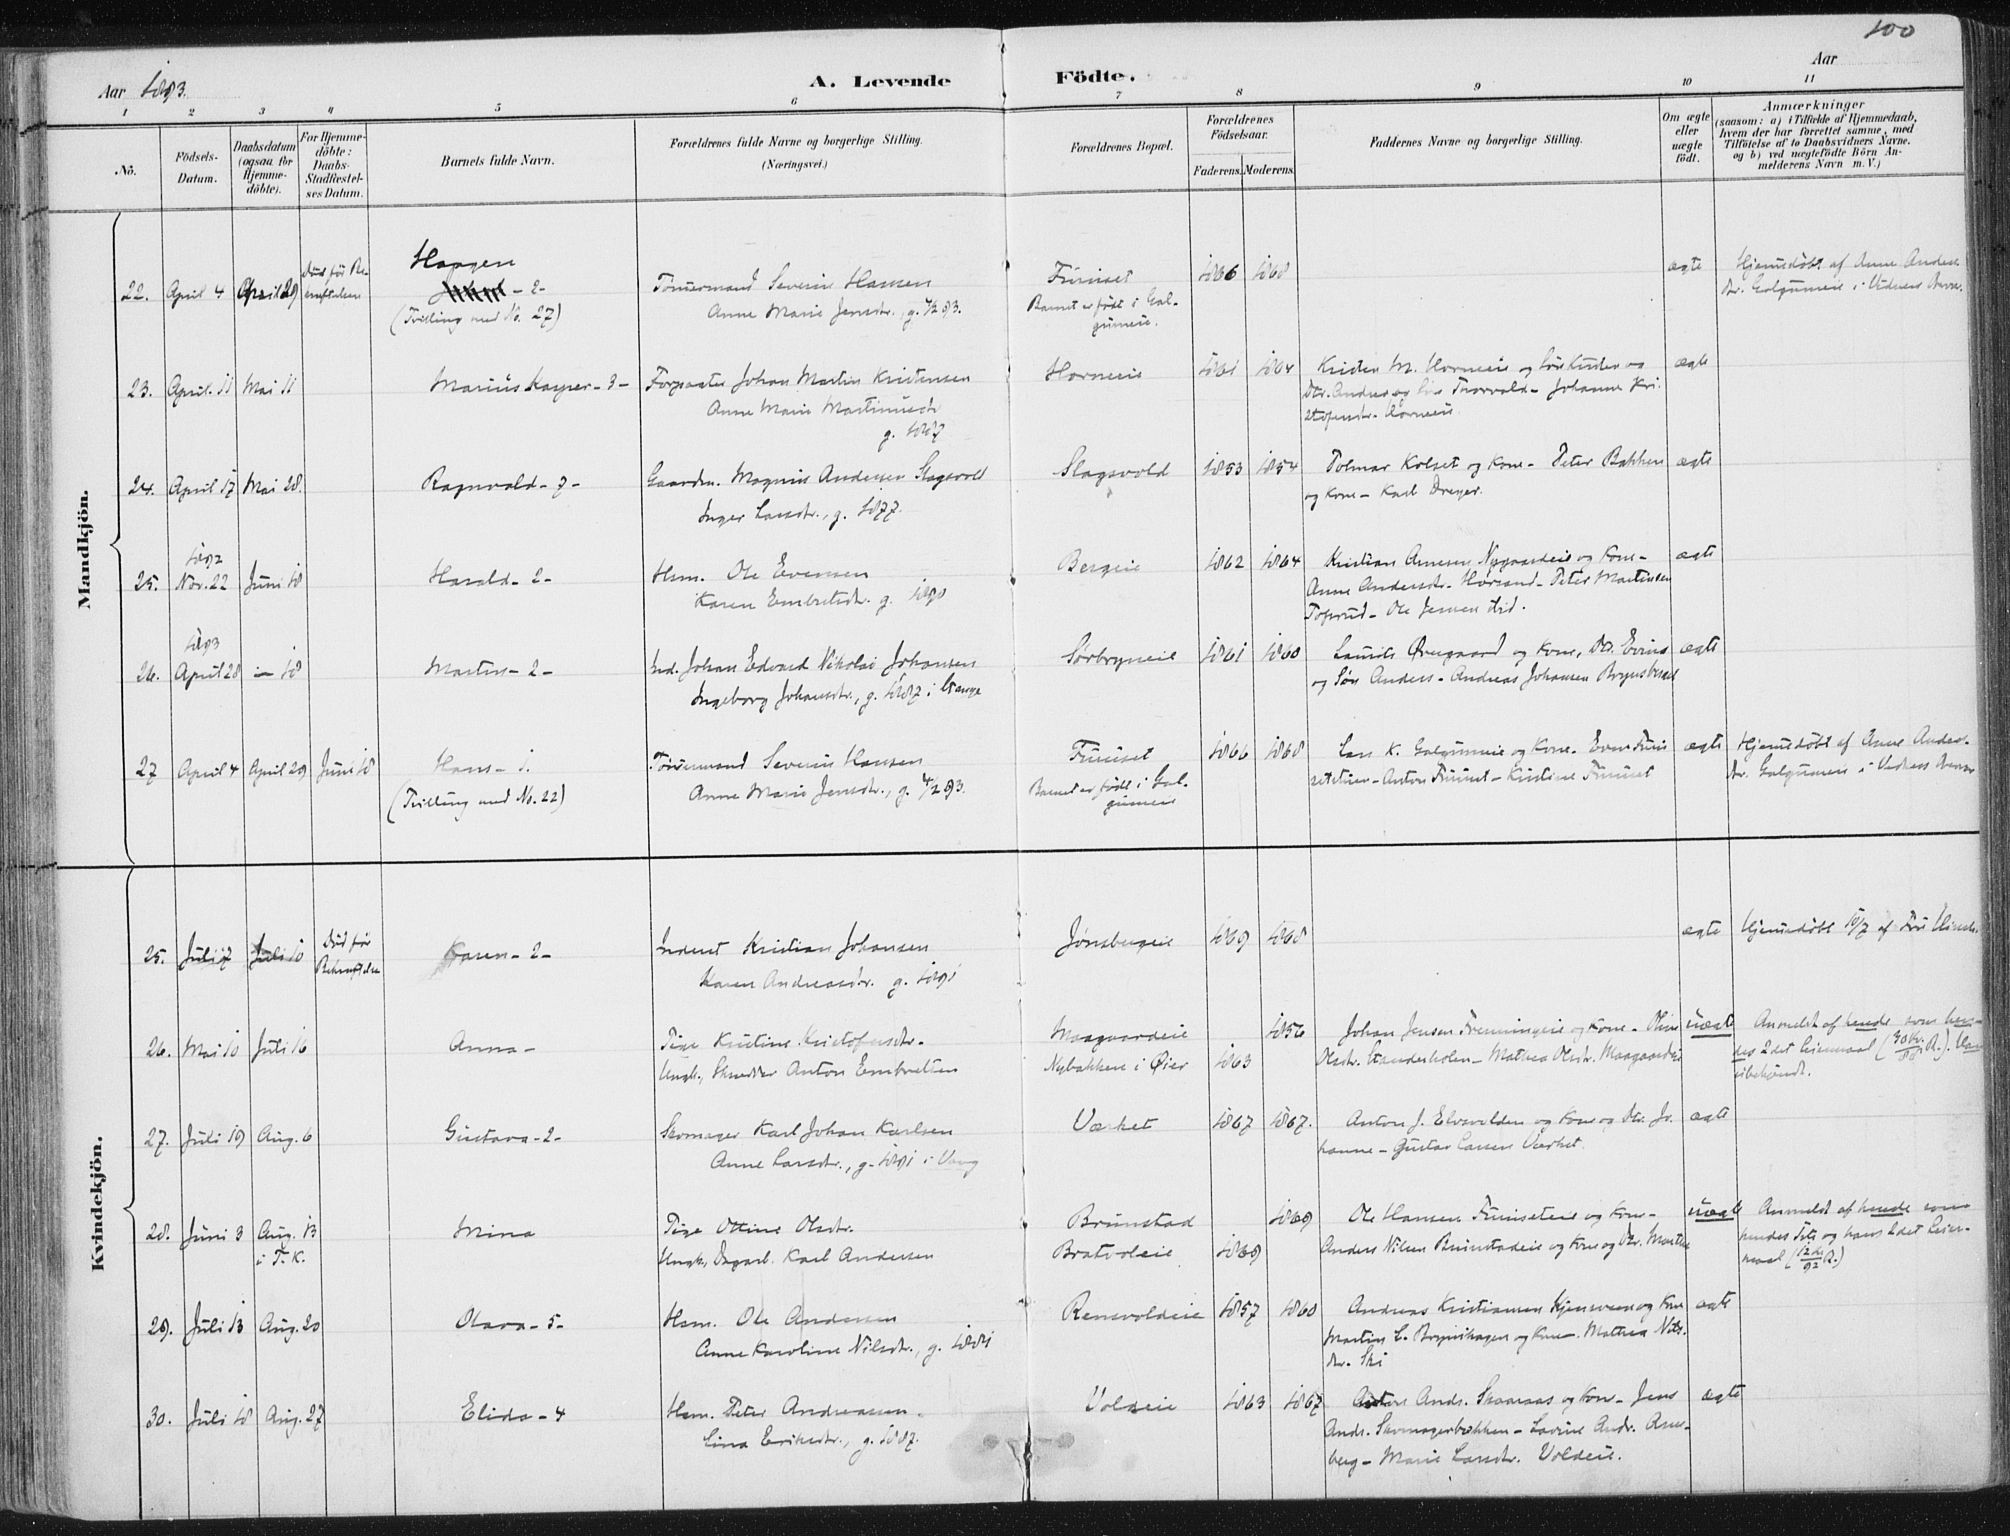 100
Aar 1893.
A. Levende Födte.
Aar
1 2 3 4 5 6 7 8 9 10 11
No.
Födsels-Datum.
Daabsdatum (ogsaa for Hjemme-döbte).
For Hjemme-döbte: Daabs-Stadfæstel-ses Datum.
Barnets fulde Navn.
Forældrenes fulde Navne og borgerlige Stilling.
(Næringsvei.)
Forældrenes Bopæl.
Forældrenes Födselsaar.
Faderens. Moderens.
Faddernes Navne og borgerlige Stilling.
Om ægte eller uægte födt.
Anmærkninger
(saasom: a) i Tilfælde af Hjemmedaab,
hvem der har forrettet samme, med
Tilföielse af to Daabsvidners Navne.
og b) ved uægtefödte Börn An-
melderens Navn m. V.)
Mandkjön.
22. April 4 April 29 Död før Be-kræftelsen Haagen - 2 - (Tvilling med No. 27)
Tømmermand Severin Hansen
Anne Marie Jensdr., g. 4/2 93.
Furuset
Barnet er født i Gal-
gumeie.
1866 1868 ægte
Hjemmedøbt af Anne Anders-
dr. Galgumeie i Vidners Nærv.
23. April 11 Mai 11 Marius Kasper - 3 -
Forpagter Johan Martin Kristensen
Anne Marie Martinusdr
g. 1887
Horneeie 1861 1864
Kristen M. Horneeie og Søn Kristen og
Dtr. Andrea og Thorvald - Johanne Kri-
stofersdr. Horneeie. ægte
24. April 17 Mai 28. Ragnvald - 7 -
Gaardm. Magnus Andersen Slagsvold
Inger Larsdr., g. 1877.
Slagsvold 1853 1854
Tolmar Kolset og Kone - Peter Bakken
og Kone - Karl Dreyer. ægte
25. 1892 Nov. 22 Juni 18 Harald - 2 -
Hsm. Ole Evensen
Karen Embretsdr. g. 1890
Bergeie 1862 1864
Kristian Arnesen Nygaardeie og Kone -
Anne Andersdr. Horsand - Peter Martinsen
Toperud - Ole Jensen ibid. ægte
26. 1893 April 28 - 18 Martin - 2 -
Ind. Johan Edvard Nikolai Johansen
Ingeborg Johansdr., g. 1887 i Stange
Sørbryneie 1861 1860
Laurits Øvregaard og Kone, Dtr. Evina
og Søn Anders - Andreas Johansen Brynsbræd ægte
27 April 4 April 29 Juni 18 Hans - 1.
(Tvilling med No. 22)
Tømmermand Severin Hansen
Anne Marie Jensdr., g. 4/2 93.
Furuset
Barnet er født i Gal-
gumeie
1866 1868
Lars K. Galgumeie og Kone - Even Furu-
seteie - Anton Furuset - Kristine Furuset ægte
Hjemmedøbt af Anne Anders-
dr. Galgumeie i Vidners Nærvær
Kvindekjön.
25. Juli 7 Juli 10 Död før Bekræftelse Karen - 2 -
Inderst Kristian Johansen
Karen Andreasdr. g. 1891
Jønsbergeie 1869 1868 ægte
Hjemmedøbt 10/7 af
26. Mai 10 Juli 16 Anna -
Pige Kristine Kristofersdr.
Ungk., Skrædder Anton Embretsen
Maagaardeie
Nybakken i Øier
1863 1856
Johan Jensen Fremmingeie og Kone - Oline
Olsdr. Standerholen - Mathea Olsdr. Maagaardeie uægte
Anmeldt af hende som hen-
des 2det Leiermaal. Han
ubekjendt.
27. Juli 19 Aug. 6 Gustava - 2 -
Skomager Karl Johan Karlsen
Anne Larsdr., g. 1891 i Vang
Værket 1867 1867.
Anton J. Elvevolden og Kone og Dtr. Jo-
hanne - Gustav Larsen Værket. ægte
28. Juni 3 Aug. 13 i T. K. Mina
Pige Ottine Olsdr.
Ungk., Dagarb. Karl Andersen
Brunstad
Bratvoleie
1869 1869
Ole Hansen Furuseteie og Kone -
Anders Nilsen Brunstadeie og Kone og Dtr. Marthe uægte
Anmeldt af hende som
hendes 1ste og hans 2det Leier-
maal
29. Juli 13 Aug. 20 Olava - 5 -
Hsm. Ole Andersen
Anne Karoline Nilsdr., g. 1881
Rensvoldeie 1857 1860
Andreas Kristiansen Kjensveen og Kone
Martin L. Brynihagen og Kone - Mathea Nils-
dr. Ski ægte
30. Juli 18 Aug. 27 Elida - 4
Hsm. Peter Andreassen -
Lina Eriksdr., g. 1887.
Voldeie 1863 1867
Anton Ands. Skaaraas og Kone - Jens
Ands. Skomagerbakken - Lovise Andr. Arne-
berg - Marie Larsdr. Voldeie. ægte